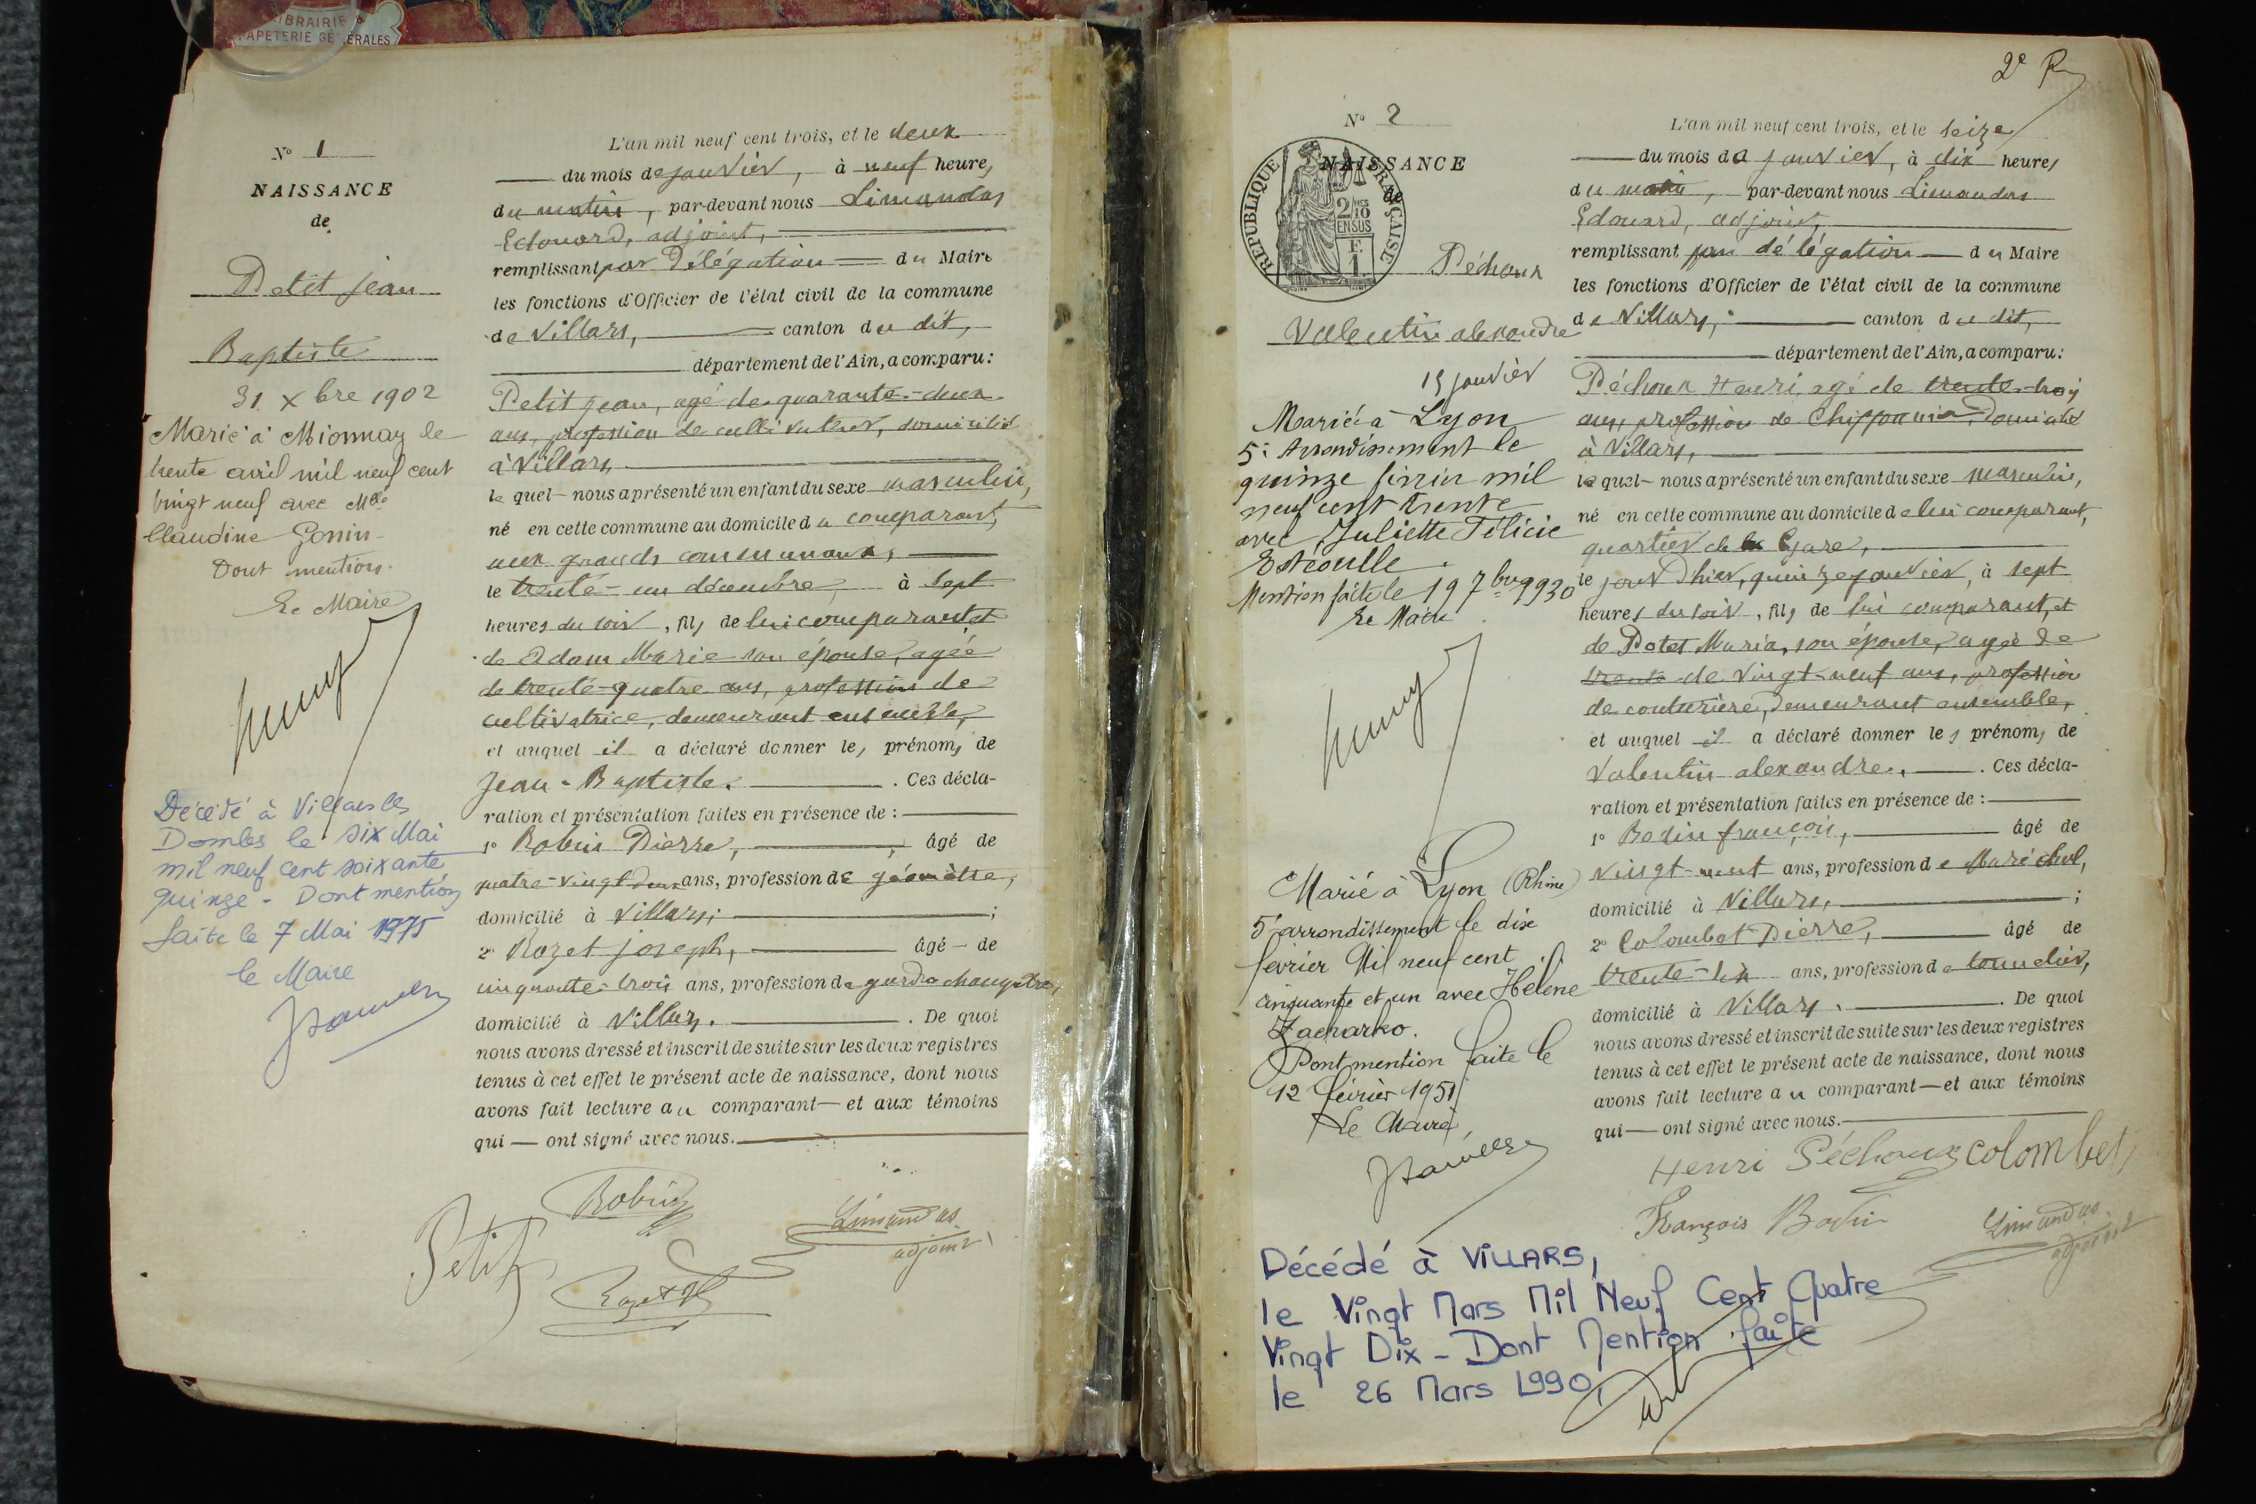 LIBRAIRIE &
PAPETERIE GÉNÉRALES
N° 1
NAISSANCE
de
Petit jean
Baptiste
31 Xbre 1902
Marié à Mionnay le
trente avril mil neuf cent
vingt neuf avec Mlle
Claudine Gonin
Dont mention.
Le Maire
Décédé à Villars les
Dombes le six Mai
mil neuf cent soixante
quinze - Dont mention
faite le 7 Mai 1975
le Maire
L'an mil neuf cent trois, et le deux
du mois de janvier, à neuf heures
du matin, par-devant nous Limandas
Edouard, adjoint,
remplissant par Délégation du Maire
les fonctions d'Officier de l'état civil de la commune
de Villars, canton du dit,
département de l'Ain, a comparu:
Petit jean, agé de quarante-deux
ans, profession de cultivateur, domicilié
à Villars,
lequel nous a présenté un enfant du sexe masculin,
né en cette commune au domicile du comparant,
aux grands communaux,
le trente-un décembre, à sept
heures du soir, fils de lui comparant et
de Adam Marie son épouse, agée
de trente-quatre ans, profession de
cultivatrice, demeurant ensemble,
et auquel il a déclaré donner les prénoms de
Jean-Baptiste. Ces décla-
ration et présentation faites en présence de :
1° Robin Pierre, âgé de
quatre-vingt deux ans, profession de géomètre,
domicilié à Villars;
2° Rozet joseph, âgé de
cinquante-trois ans, profession de garde champêtre,
domicilié à Villars. De quoi
nous avons dressé et inscrit de suite sur les deux registres
tenus à cet effet le présent acte de naissance, dont nous
avons fait lecture au comparant et aux témoins
qui ont signé avec nous.
Robin
Petit
Limandas
adjoint
Rozet
2e R
N° 2
NAISSANCE
de
REPUBLIQUE FRANÇAISE
2/10
EN SUS
Péchoux
Valentin alexandre
15 janvier
Marié à Lyon
5e Arrondissement le
quinze février mil
neuf cent trente
avec Juliette Félicie
Estéoulle.
Mention faite le 19 7bre 1930
Le Maire
Marié à Lyon (Rhône)
5e arrondissement le dix
février Mil neuf cent
cinquante et un avec Hélène
Zacharko.
Dont mention faite le
12 février 1951
Le Maire
L'an mil neuf cent trois, et le seize
du mois de janvier, à dix heures
du matin, par-devant nous Limandas
Edouard, adjoint,
remplissant par délégation du Maire
les fonctions d'Officier de l'état civil de la commune
de Villars, canton du dit,
département de l'Ain, a comparu:
Péchoux Henri, agé de trente-trois
ans, profession de Chiffonnier, domicilié
à Villars,
lequel nous a présenté un enfant du sexe masculin,
né en cette commune au domicile de lui comparant,
quartier de la Gare,
le jour d'hier, quinze janvier, à sept
heures du soir, fils de lui comparant, et
de Potet Maria, son épouse, agée de
trente de vingt-neuf ans, profession
de couturière, demeurant ensemble,
et auquel il a déclaré donner les prénoms de
Valentin alexandre. Ces décla-
ration et présentation faites en présence de :
1° Bodin françois, âgé de
vingt-neuf ans, profession de Maréchal,
domicilié à Villars, ;
2° Colombet Pierre, âgé de
trente-six ans, profession de tonnelier,
domicilié à Villars. De quoi
nous avons dressé et inscrit de suite sur les deux registres
tenus à cet effet le présent acte de naissance, dont nous
avons fait lecture au comparant et aux témoins
qui ont signé avec nous.
Henri Péchoux Colombet
François Bodin
Limandas
adjoint
Décédé à VILLARS,
le Vingt Mars Mil Neuf Cent Quatre
Vingt Dix - Dont Mention faite
le 26 Mars 1990,